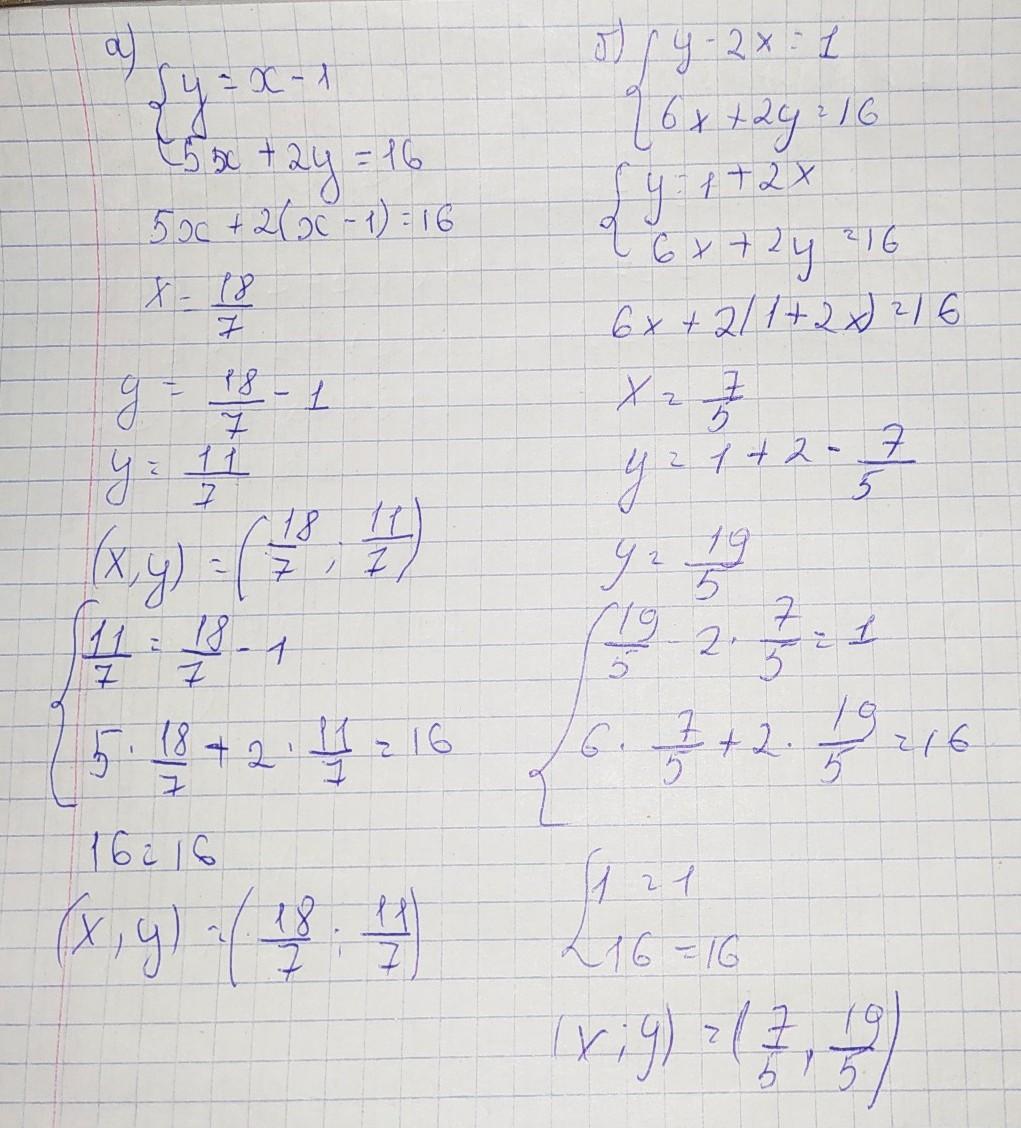 а)
{ y = x - 1
5x + 2y = 16
5x + 2(x - 1) = 16
x = 18/7
y = 18/7 - 1
y = 11/7
(x, y) = (18/7 ; 11/7)
{ 11/7 = 18/7 - 1
5 · 18/7 + 2 · 11/7 = 16
16 = 16
(x, y) = (18/7 ; 11/7)
б) { y - 2x = 1
6x + 2y = 16
{ y = 1 + 2x
6x + 2y = 16
6x + 2(1 + 2x) = 16
x = 7/5
y = 1 + 2 · 7/5
y = 19/5
{ 19/5 - 2 · 7/5 = 1
6 · 7/5 + 2 · 19/5 = 16
{ 1 = 1
16 = 16
(x ; y) = (7/5 , 19/5)